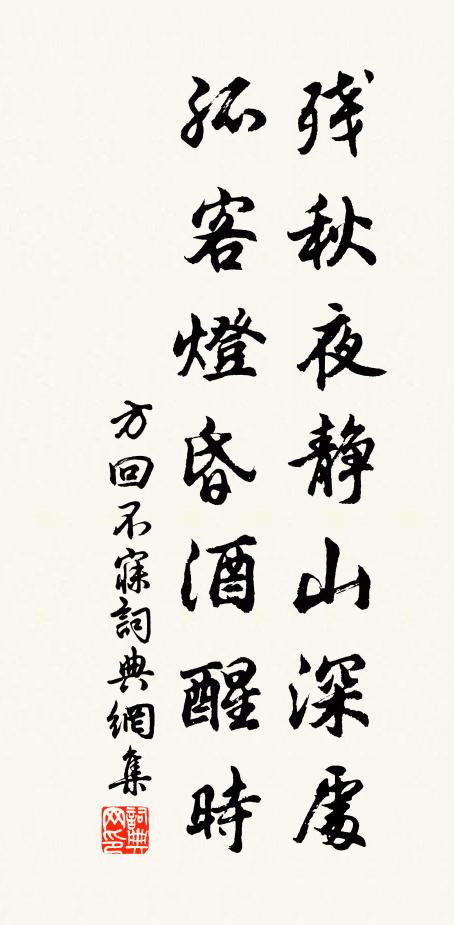 残秋夜静山深處
孤客燈昏酒醒時
方回不寐詞典網集
詞典網印